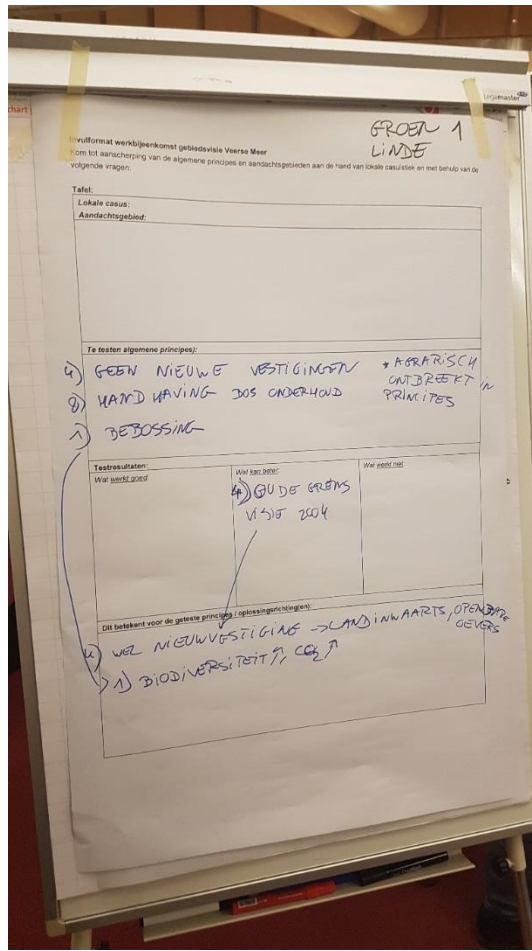 Legamaster
chart
GROEN 1
LINDE
Invulformat werkbijeenkomst gebiedsvisie Veerse Meer
Kom tot aanscherping van de algemene principes en aandachtsgebieden aan de hand van lokale casuïstiek en met behulp van de
volgende vragen:
Tafel:
Lokale casus:
Aandachtsgebied:
Te testen algemene principes):
4) GEEN NIEUWE VESTIGINGEN * AGRARISCH
ONTBREEKT IN
8) HANDHAVING BOS ONDERHOUD PRINCIPES
1) BEBOSSING
Testresultaten:
Wat werkt goed:
Wat kan beter:
Wat werkt niet:
4) OUDE GRENS
VISIE 2004
Dit betekent voor de geteste principes / oplossingsrichting(en):
4) WEL NIEUWVESTIGING → LANDINWAARTS, OPENBARE
OEVERS
1) BIODIVERSITEIT ↑, CO2 ↑